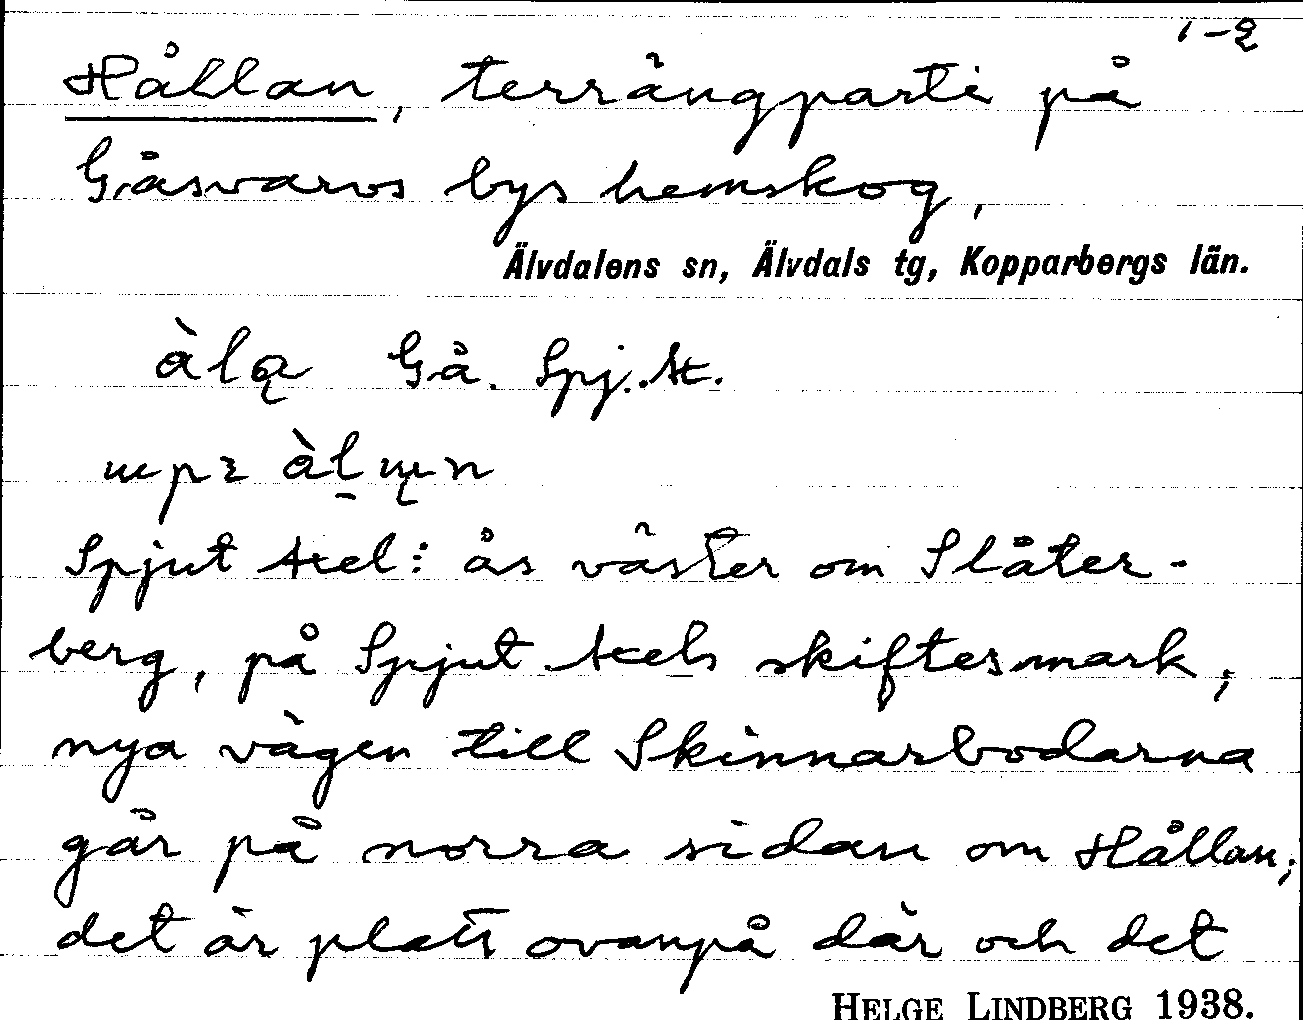 1-2
Hållan, terrängparti på
Gåsvarvs bys hemskog,
Älvdalens sn, Älvdals tg, Kopparbergs län.
àlą Gå. Spj. At.
Spjut Axel: ås väster om Slåter-
berg, på Spjut Axels skiftesmark;
nya vägen till Skinnarbodarna
går på norra sidan om Hållan;
det är platt ovanpå där och det
HELGE LINDBERG 1938.